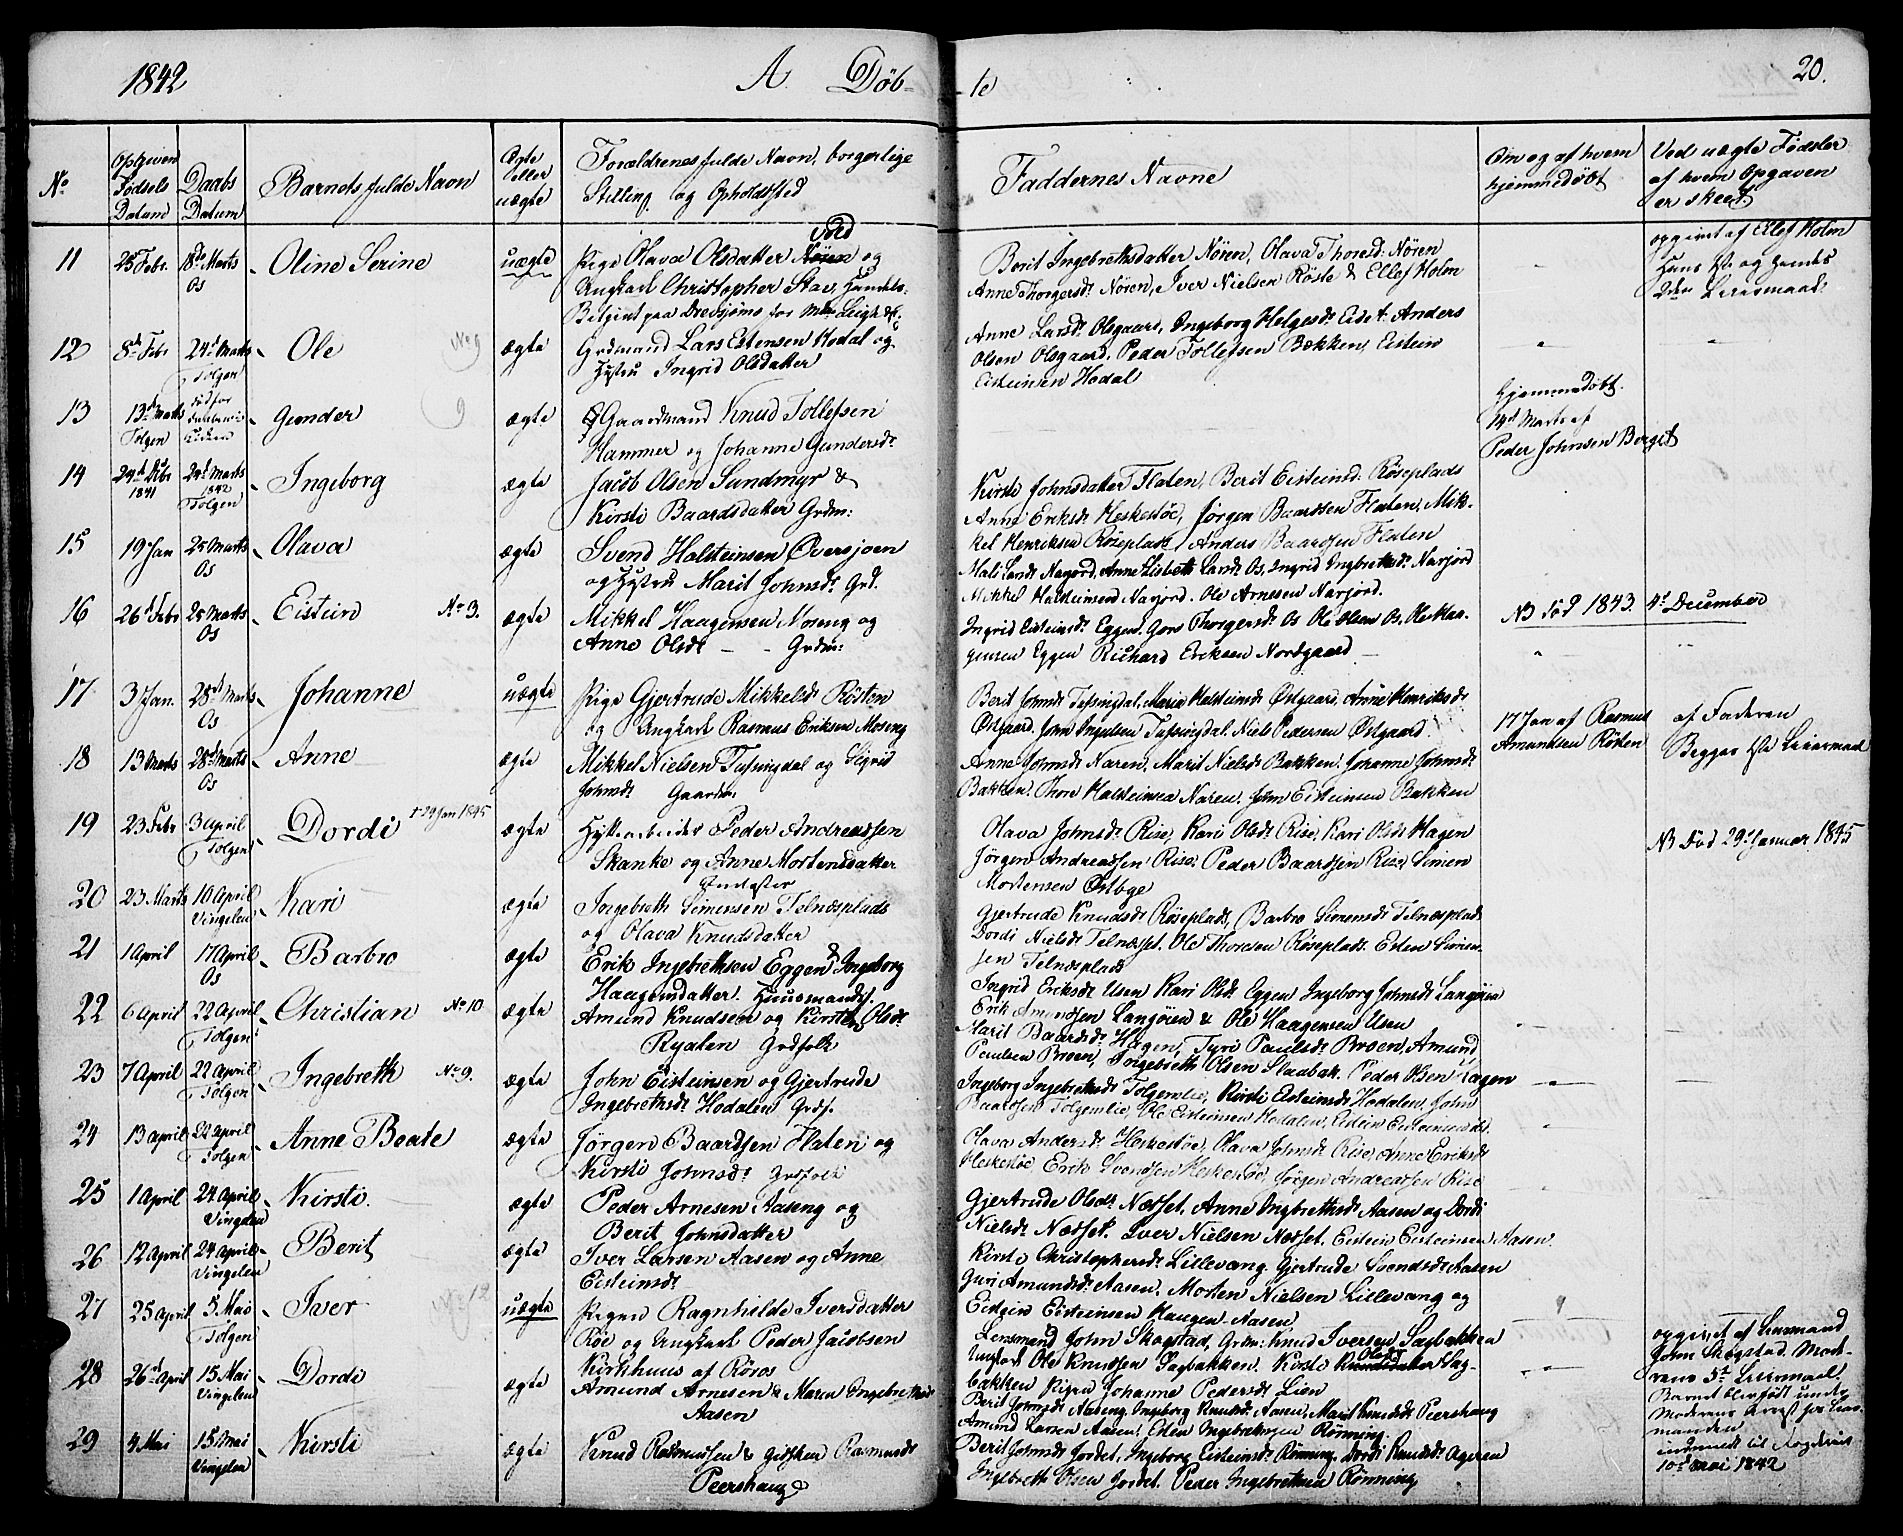 1842 A. Døb- te 20.
No
Opgiven Fødsels Datum
Daabs Datum
Barnets fulde Navn
Ægte eller uægte
Forældrenes fulde Navn, borgerlige Stilling og Opholdssted
Faddernes Navne
Om og af hvem hjemmedøbt
Ved uægte Fødsler af hvem Opgaven er skeet
11 25 Febr. 18de Marts Os Oline Serine uægte
Pige Olava Olsdatter Nøren og
Ungkarl Christopher Stav, Handels-
Betjent paa Drevsjømo for
Berit Ingebrethsdatter Nøren, Olava Thoresd: Nøren
Anne Thorgersdr Nøren, Iver Nielsen Røste & Ellef Holm
opgivet af Ellef Holm
Hans 1ste og hendes
2den Leiermaal.
12 8de Febr 24d Marts Tolgen Ole No 9 ægte
Grdmand Lars Estensen Hodal og
Hustru Ingrid Olsdatter
Anne Larsdr. Olsgaard, Ingeborg Helgesdr Eidet. Anders
Olsen Olsgaard, Peder Tollefsen Bakken, Eistein
Eisteinsen Hodal
13 13d Marts Tolgen Gunder 9 ægte
Gaardmand Knud Tollefsen
Hammer og Johanne Gundersdr
Hjemmedøbt
14d Marts af
Peder Johnsen Berget
14 24d Dcbr 1841 24d Marts 1842 Tolgen Ingeborg ægte
Jacob Olsen Sundmyr &
Kirsti Baardsdatter Grdm:
Kirsti Johnsdatter Flaten, Berit Eisteinsd: Røseplads
Anne Eriksdr Heskestøe, Jørgen Baardsen Flaten, Mik-
kel Henriksen Røseplads, Anders Baardsen Flaten
15 19 Jan 25 Marts Os Olava ægte
Svend Halsteinsen Øversjoen
og Hustru Marit Johnsdr. Grd.
Mali Larsdr Narjord, Anne Lisbeth Larsdr Os, Ingrid Ingbrethsdr. Narjord
Mikkel Halsteinsen Narjord. Ole Arnesen Narjord.
16 26d Febr 25 Marts Os Eistein No 3. ægte
Mikkel Haagensen Moseng og
Anne Olsdr - - Grdm:
Ingrid Eisteinsdr. Eggen, Thorgersdr Os Ole Olsen Os, Ole Haa-
gensen Eggen Richard Eriksen Nordgaard
NB død 1843. 4d December
17 3 Jan. 28d Marts Os Johanne uægte
Pige Gjertrude Mikkelsdr Røsten
og Ungkarl Rasmus Eriksen Moseng
Berit Johnsdr Tufsingdal, Marie Halsteinsdr Østgaard, Anne Henriksdr
Østgaard. John Ingulsen Tufsingdal. Niels Pedersen Østgaard
17 Jan af Rasmus
Amundsen Røsten
af Faderen
Begges 1ste Leiermaal
18 13 Marts 28d Marts Os Anne ægte
Mikkel Nielsen Tufsingdal og Sigrid
Johnsdr Gaardm:
Anne Johnsdr Naren, Marit Nielsdr Bakken. Johanne Johnsdr
Bakken. Thore Halsteinsen Naren. John Eisteinsen Bakken
19 23 Febr 3 April Tolgen Dordi † 29 Jan 1845 ægte
Hyttearbeider Peder Andreassen
Skanke og Anne Mortensdatter
Olava Johnsdr Rise, Kari Olsdr Rise, Kari Olsdr Hagen
Jørgen Andreassen Rise, Peder Baardsen Rise, Simen
Mortensen Østbye
NB Død 29d Januar 1845
20 23 Marts 10 April Vingelen Kari ægte
Ingebreth Simensen Telnesplads
og Olava Knudsdatter
Gjertrude Knudsdr Røseplads, Barbro Simensdr Telnesplad.
Dordi Nielsdr Telneset. Ole Thoresen Røseplads. Esten Simen-
sen Telnesplads
21 1 April 17 April Os Barbro ægte
Erik Ingebrethsen Eggen & Ingeborg
Haagensdatter. Huusmandsf.
Ingrid Eriksdr Usen Kari Olsdr Eggen Ingeborg Johnsdr Langøien
Erik Amundsen Langøien & Ole Haagensen Usen
22 6 April 22 April Tolgen Christian No 10 ægte
Amund Knudsen og Kirsten Olsdr
Ryaten Grdfolk
Marit Baardsdr. Hagen, Tyri Paulsdr. Broen, Amund
Paulsen Broen, Ingebreth Olsen Slaabak. Peder Olsen Hagen
23 7 April 22 April Tolgen Ingebreth No 9. ægte
John Eisteinsen og Gjertrude
Ingebrethsdr Hodalen Grdf.
Ingeborg Ingebrethsdr Tolgemlie, Kirsti Eisteinsdr Hodalen, John
Baardsen Tolgemlie, Ole Eisteinsen Hodalen, Eistein
24 13 April 22 April Tolgen Anne Beate ægte
Jørgen Baardsen Flaten og
Kirsti Johnsdr Grdfolk
Olava Andersdr. Heskestøe, Olava Johnsdr Rise, Anne Eriksdr
Heskestøe, Erik Svendsen Heskestøe, Jørgen Andreassen Rise
25 1 April 24 April Vingelen Kirsti. ægte
Peder Arnesen Aaseng og
Berit Johnsdatter
Gjertrude Olsdr Næsset. Anne Ingbrethsdr Aasen og Dordi
Nielsdr Næsset. Iver Nielsen Næsset. Eistein Eisteinsen Aasen.
26 12 April 24 April Vingelen Berit ægte
Iver Larsen Aasen og Anne
Eisteinsdr
Kirsti Christophersdr Lillevang Gjertrude Svendsdr Aasen
Guri Amundsdr Aasen. Morten Nielsen Lillevang og
Eistein Eisteinsen Haugen Aasen.
27 25 April 5. Mai Tolgen Iver uægte
Pigen Ragnhilde Iversdatter
Røe og Ungkarl Peder Jacobsen
Kirkhuus af Røros
Lensmand John Skogstad, Knud Iversen Sagbakken
Ungkarl Ole Knudsen Sagbakken. Kirsti Olsdr Sag-
bakken Pigen Johanne Pedersdr Lien
opgivet af Lensmand
John Skogstad. Mod-
rens 5te Leiermaal.
Barnet blev født under
Moderens Arrest
10d Mai 1842
28 26d April 15 Mai Vingelen Dordi ægte
Amund Arnesen & Maren Ingebrethsdr
Aasen
Berit Johnsdr Aaseng. Ingeborg Knudsdr Aasen, Marit Knudsdr Peershaug
Amund Larsen Aasen, Esten Ingebrethsen Rønning.
29 4 Mai 15 Mai Vingelen Kirsti ægte
Knud Rasmussen & Gidsken Rasmusdr
Peershaug
Berit Johnsdr Jordet, Ingeborg Eisteinsdr Rønning, Dordi Knudsdr Ageren
Ingebreth Olsen Jordet. Peder Ingebrethsen Rønning